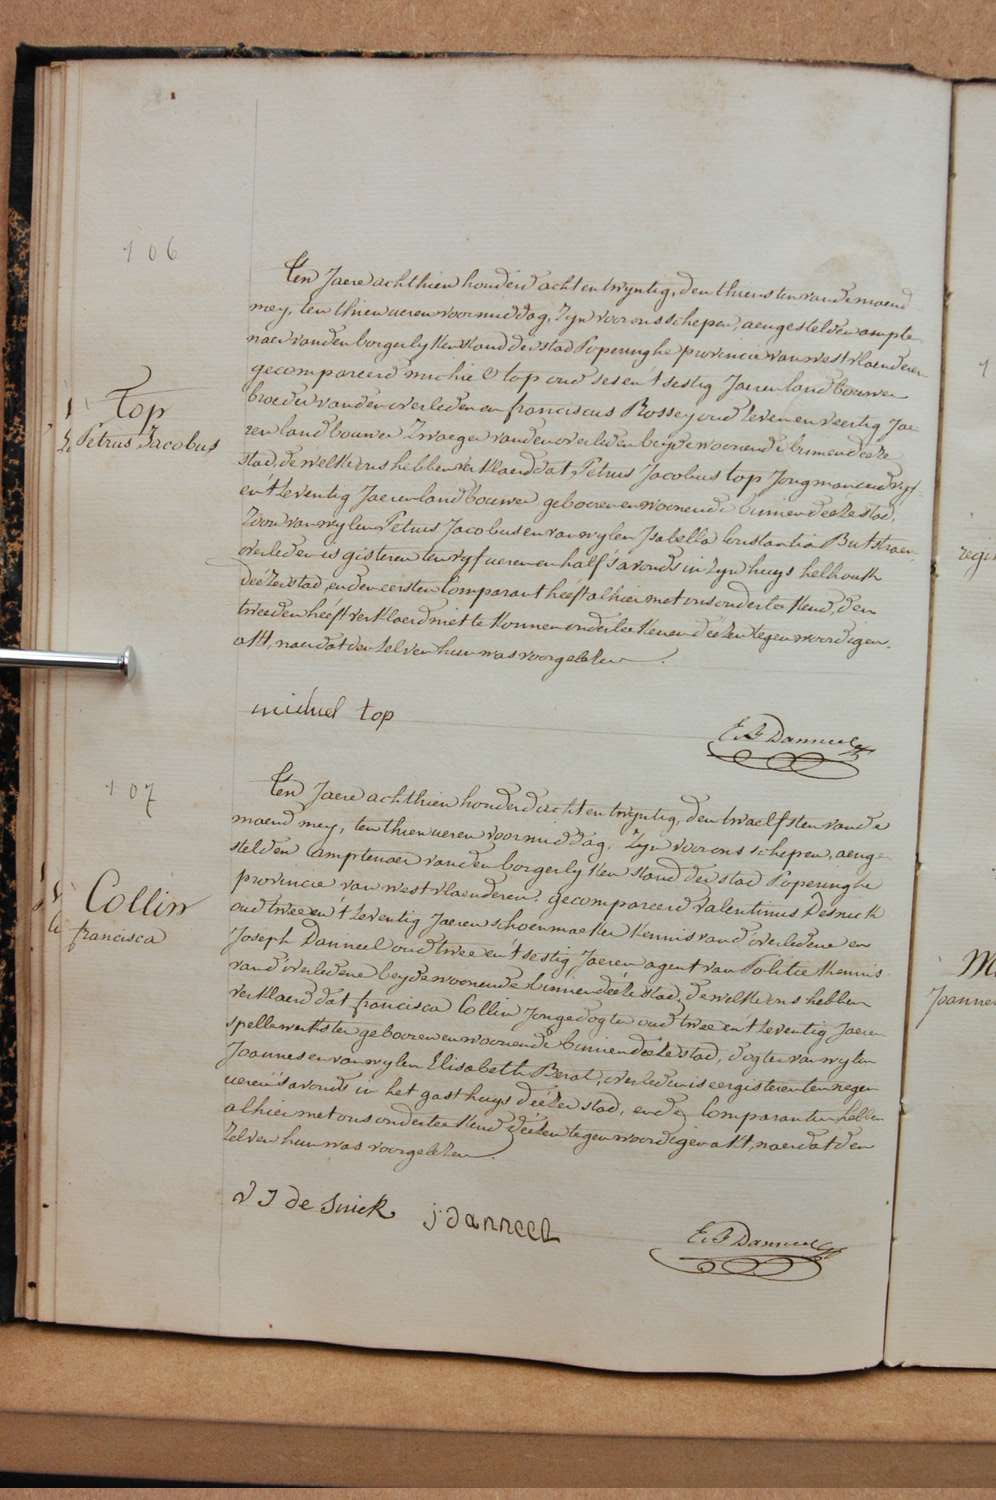 106
Top
Petrus Jacobus
Ten Jaere achthien honderd acht en twyntig, den thiensten vande maend
mey, ten thien ueren voormiddag, Zyn voor ons schepen, aengestelden ampte-
naer van den borgerlyken stand der stad Poperinghe provincie van westvlaenderen
gecompareerd michiel top oud ses en 't sestig Jaeren landbouwer
broeder van den overleden en franciscus Rossey oud zeven en veertig Jae
ren landbouwer Zwaeger van den overleden beyde woonende binnen deeze
stad, de welke ons hebben verklaerd dat Petrus Jacobus top Jongman oud vyf
en 't Zeventig Jaeren landbouwer geboren en woonende binnen deeze stad,
Zoon van wylen Petrus Jacobus en van wylen Isabella Constantia Butstraen
overleden is gisteren ten vyf ueren en half s'avonds in zyn huys helhouk
deézer stad, en den eersten Comparant heéft alhier met ons onderteekend, den
tweeden heéft verklaerd niet te konnen onderteekenen deézen tegenwoordigen
akt, naer dat den zelven hun was voorgelezen.
michiel top
E. B Danneel
107
Collin
francisca
Ten Jaere achthien honderd acht en twyntig, den twaelfsten vande
maend mey, ten thien ueren voormiddag, Zyn voor ons schepen, aenge-
stelden amptenaer van den borgerlyken stand der stad Poperinghe
provincie van westvlaenderen, gecompareerd Valentinus Desnick
oud twee en 't Zeventig Jaeren schoenmaeker kennis vand' overledene en
Joseph Danneel oud twee en 't sestig Jaeren agent van Politie kennis
vand' overledene beyde woonende binnen deéze stad, de welke ons hebben
verklaerd dat francisca Collin Jongedogter oud twee en 't Zeventig Jaeren
spellewerkster geboren en woonende binnen deéze stad, dogter van wylen
Joannes en van wylen Elisabeth Berat, overleden is eergisteren ten negen
ueren s'avonds in het gasthuys deézer stad, en de Comparanten hebben
alhier met ons onderteekend deézen tegenwoordigen akt, naer dat den
Zelven hun was voorgelezen.
V J de Snick
j. danneel
E. B Danneel